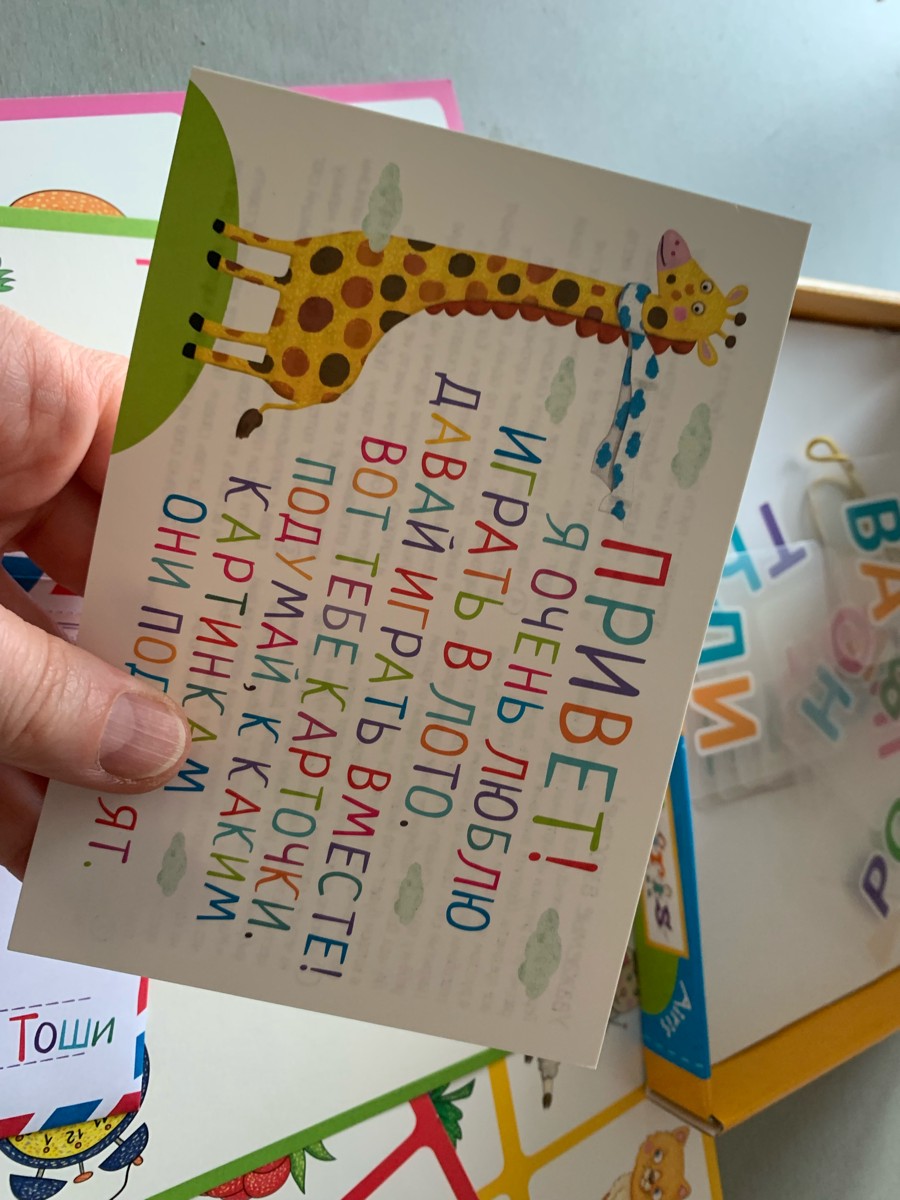 ПРИВЕТ!
Я ОЧЕНЬ ЛЮБЛЮ
ИГРАТЬ В ЛОТО.
ДАВАЙ ИГРАТЬ ВМЕСТЕ!
ВОТ ТЕБЕ КАРТОЧКИ.
ПОДУМАЙ, К КАКИМ
КАРТИНКАМ
ОНИ
Тоши